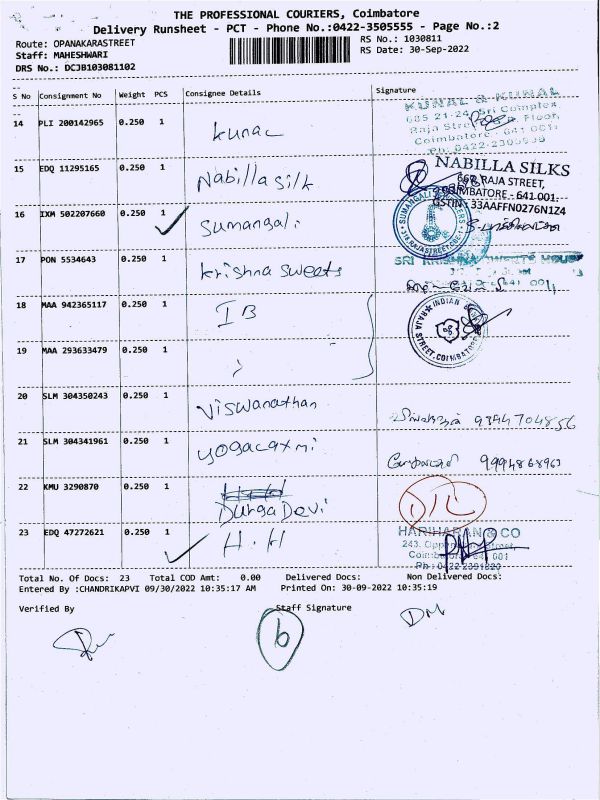 THE PROFESSIONAL COURIERS, Coimbatore
Delivery Runsheet - PCT - Phone No.:0422-3505555 - Page No.:2
Route: OPANAKARASTREET
RS No.: 1030811
Staff: MAHESHWARI
RS Date: 30-Sep-2022
DRS No.: DCJB103081102
S No Consignment No Weight PCS Consignee Details Signature
14 PLI 200142965 0.250 1 Kunal
KUNAL & KUNAL
685 21-24, Sri Complex,
Raja Street, Floor,
Coimbatore - 641 001
15 EDQ 11295165 0.250 1 Nabilla silk
NABILLA SILKS
668 RAJA STREET,
COIMBATORE - 641 001.
GSTIN : 33AAFFN0276N1Z4
16 IXM 502207660 0.250 1 Sumangali
17 PON 5534643 0.250 1 Krishna sweets
SRI KRISHNA SWEETS HOUSE
18 MAA 942365117 0.250 1 IB
INDIAN
RAJA STREET, COIMBATORE
19 MAA 293633479 0.250 1 ,
20 SLM 304350243 0.250 1 Viswanathan
21 SLM 304341961 0.250 1 yogalaxmi
22 KMU 3290870 0.250 1 Durga Devi
23 EDQ 47272621 0.250 1 H.H
HARIHARAN & CO
243, Oppanakara Street,
Coimbatore - 641 001
Total No. Of Docs: 23 Total COD Amt: 0.00 Delivered Docs: Non Delivered Docs:
Entered By :CHANDRIKAPVI 09/30/2022 10:35:17 AM Printed On: 30-09-2022 10:35:19
Verified By Staff Signature
6